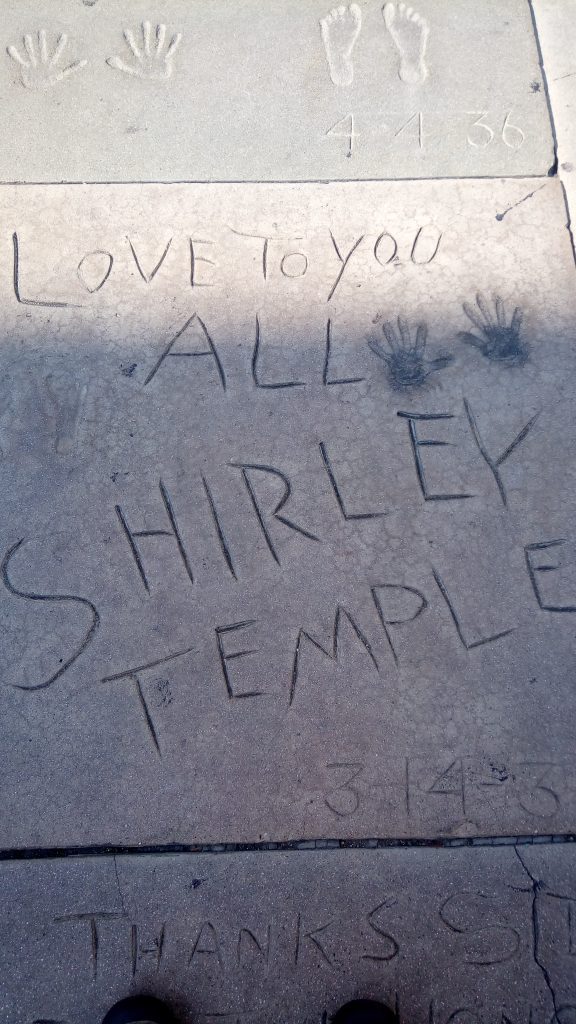 4 4 36
LOVE TO YOU
ALL
SHIRLEY
TEMPLE
3-14-3
THANKS SI